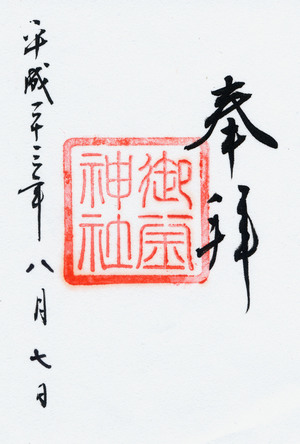 奉拝
御霊
神社
平成二十三年八月七日